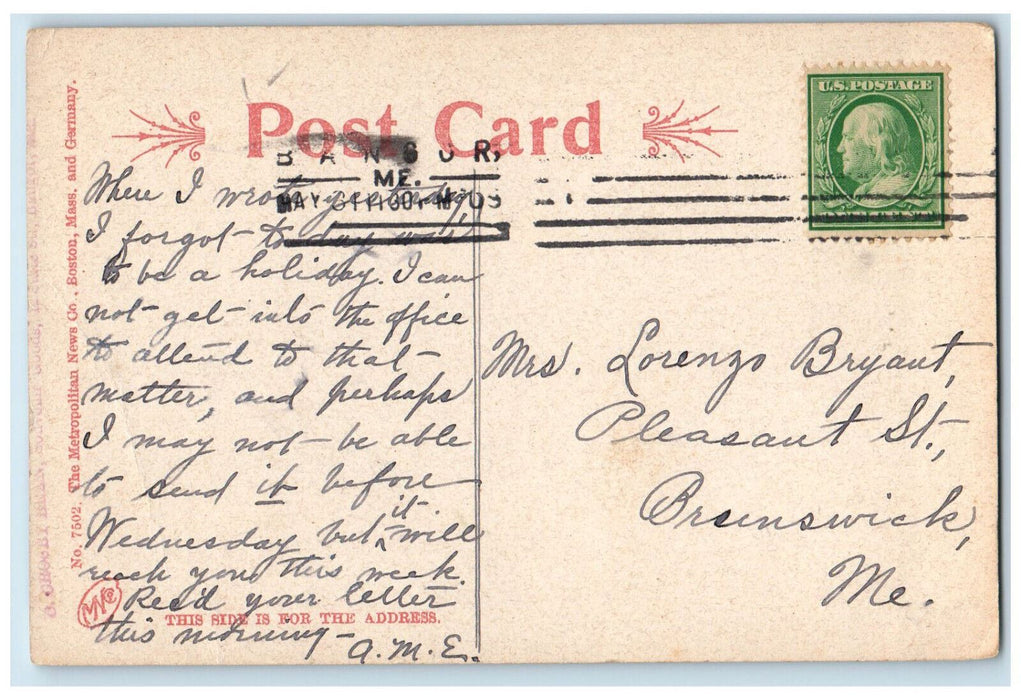 Post Card
BANGOR,
ME.
MAY 31 11 30 A M '09
U.S. POSTAGE
Where I wrote yesterday
I forgot to day was
to be a holiday. I can
not get into the office
to attend to that
matter, and perhaps
I may not be able
to send it before
Wednesday but it will
reach you this week.
Rec'd your letter
this morning —
A.M.E.
Mrs. Lorenzo Bryant,
Pleasant St.,
Brunswick,
Me.
No. 7502. The Metropolitan News Co., Boston, Mass. and Germany.
THIS SIDE IS FOR THE ADDRESS.